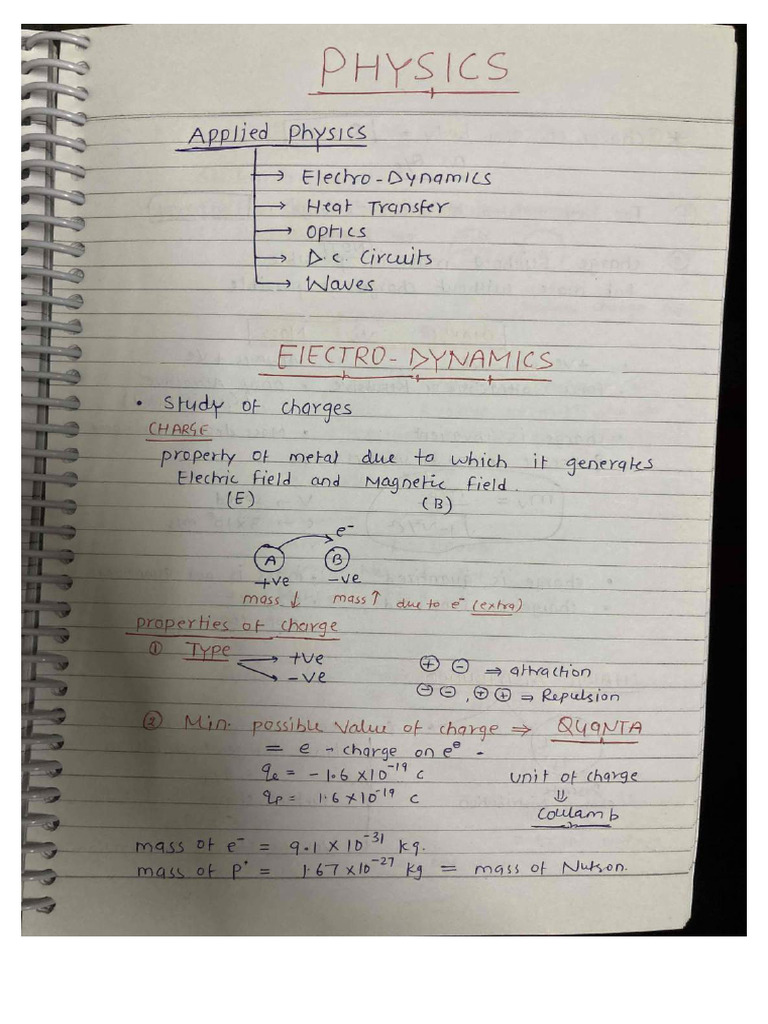 PHYSICS
Applied Physics
→ Electro-Dynamics
→ Heat Transfer
→ Optics
→ D.C Circuits
→ Waves
ElECTRO-DYNAMICS
• Study of charges
CHARGE
property of metal due to which it generates
Electric field and Magnetic field.
(E) (B)
e⁻
A B
+ve -ve
mass ↓ mass ↑ due to e⁻ (extra)
properties of charge
① TYPE → +ve
→ -ve
⊕ ⊖ ⇒ attraction
⊖ ⊖, ⊕ ⊕ ⇒ Repulsion
② Min. possible value of charge ⇒ QUANTA
= e → charge on e
qe = -1.6 ×10⁻¹⁹ c unit of charge
qp = 1.6 ×10⁻¹⁹ c ⇓
Coulamb
mass of e⁻ = 9.1 × 10⁻³¹ kg.
mass of P⁺ = 1.67 ×10⁻²⁷ kg = mass of Nutson.